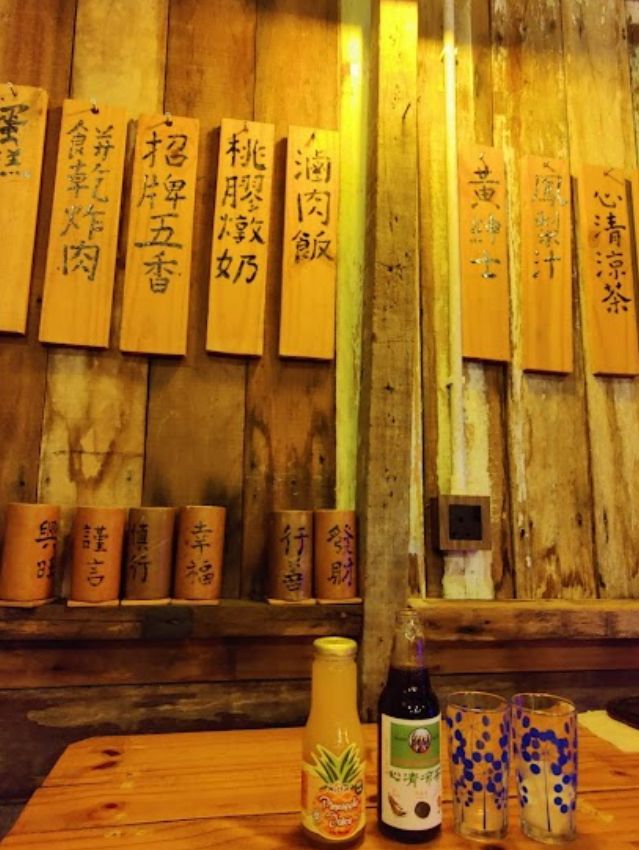 蛋糕
餅乾炸肉
招牌五香
桃膠燉奶
滷肉飯
黃紳士
鳳梨汁
心清涼茶
興旺
謹言
慎行
幸福
行善
發財
Pineapple
Juice
心清涼茶